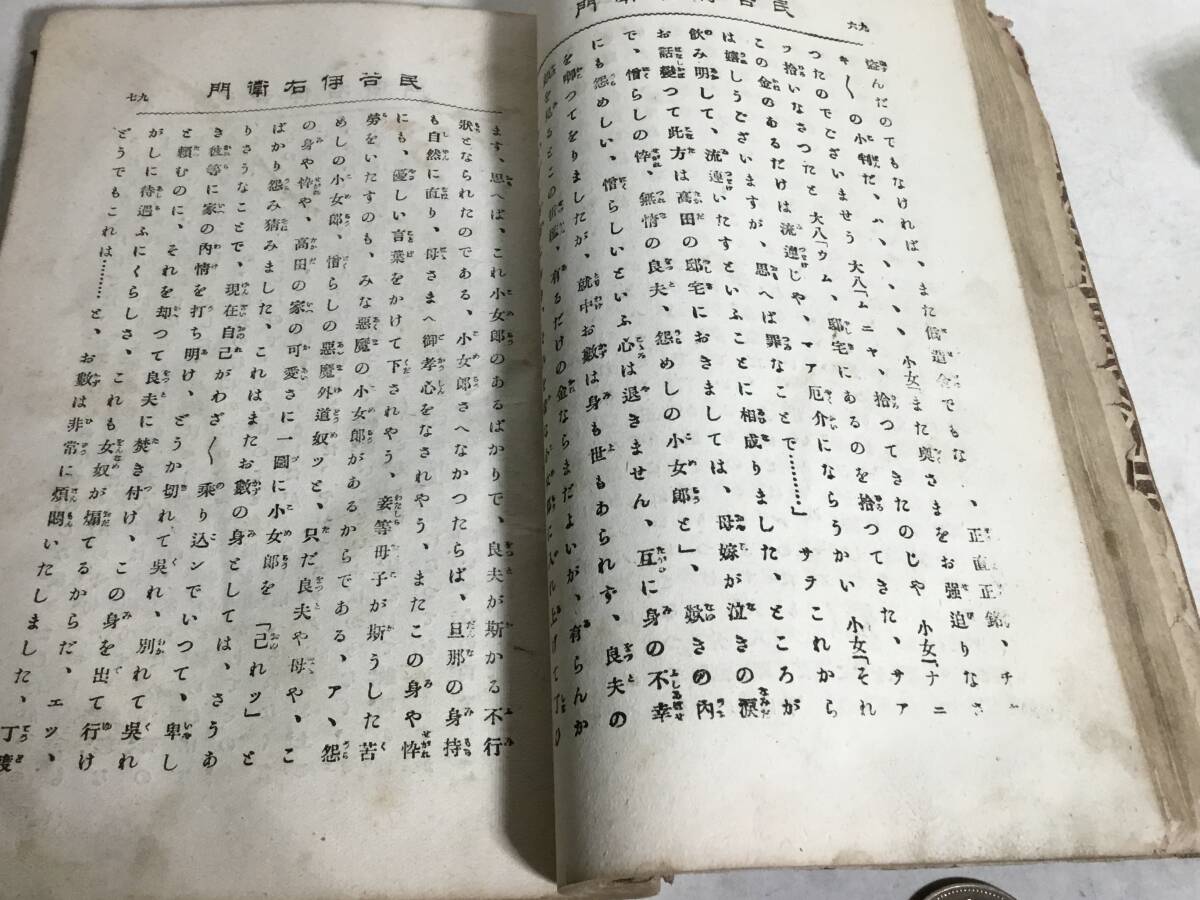 九六
盗んだのでもなければ、また僞造金でもな、正直正銘、チ
キ〳〵の小判だ、ハ、、、、、小女「また奥さまをお強迫りなさ
つたのでございませう大八「ムニャ、拾つてきたのじや小女「ナニ
ッ拾いなさつたと大八「ウム、邸宅にあるのを拾つてきた、サア
この金のあるだけは流連じや、マア厄介にならうかい小女「それ
は嬉しうございますが、思へば罪なことで………」サヲこれから
飲み明して、流連いたすといふことに相成りました、ところが
お話變つて此方は高田の邸宅におきましては、母嫁が泣きの涙
で、憎らしの悴、無情の良夫、怨めしの小女郎と」、きの内
にも怨めしい、憎らしいといふ心は退きません、互に身の不幸
を喞つてをりましたが、就中お數は身も世もあられず、良夫の
有るだけの金ならまだよいが、有らんか
民谷伊右衛門
九七
ます、思へば、これ小女郎のあるばかりで、良夫が斯かる不行
狀となられたのである、小女郎さへなかつたらば、旦那の身持
も自然に直り、母さまへ御孝心をなされやう、またこの身や悴
にも、優しい言葉をかけて下されやう、妾等母子が斯うした苦
勞をいたすのも、みな惡魔の小女郎があるからである、ア、怨
めしの小女郎、憎らしの惡魔外道奴ッと、只だ良夫や母や、こ
の身や悴や、高田の家の可愛さに一圖に小女郎を「己れッ」と
ばかり怨み猜みました、これはまたお數の身としては、さうあ
りさうなことで、現在自己がわざ〳〵乘り込ンでいつて、卑し
き彼等に家の内情を打ち明け、どうか切れて呉れ、別れて呉れ
と頼むのに、それを却つて良夫に焚き付け、この身を出て行け
がしに待遇ふにくらしさ、これも女奴が煽てるからだ、エッ、
どうでもこれは………と、お數は非常に煩悶いたしました、丁度